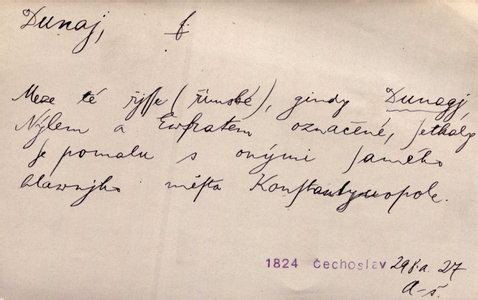 Dunaj, f.
Meze té řjsse (římské), gindy Dunagj
Nýlem a Eufratem označené, setkaly
se pomalu s onými samého
hlawnjho města Konstantynopole.
1824 Čechoslav 298.a. 27
a-š.